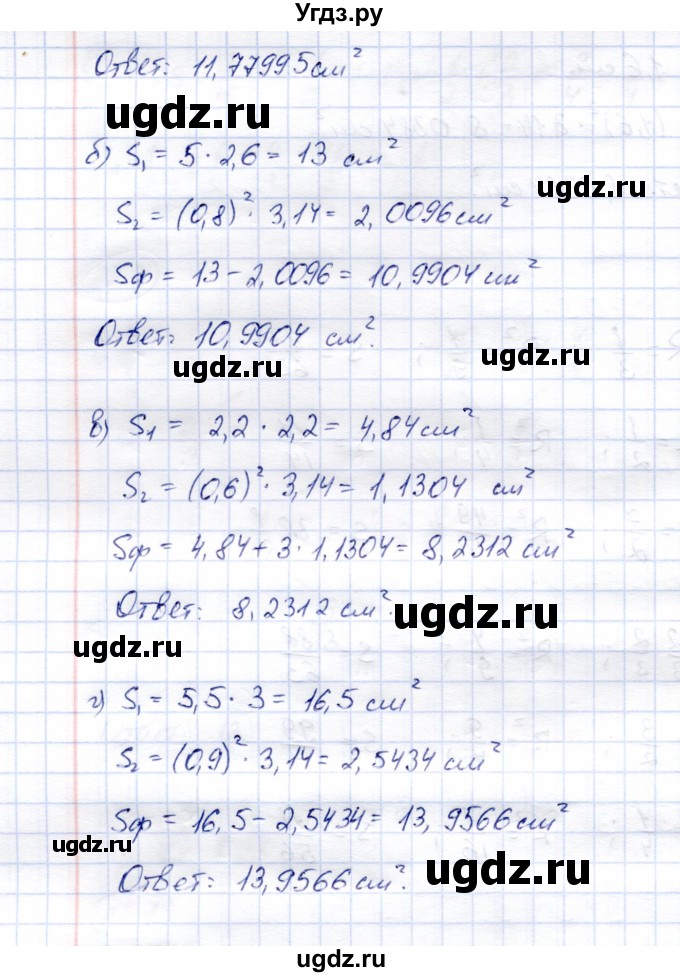 Угдз.ру
Ответ: 11,77995 см²
ugdz.ru
ugdz.ru
б) S₁ = 5 · 2,6 = 13 см²
ugdz.ru
S₂ = (0,8)² · 3,14 = 2,0096 см²
Sф = 13 - 2,0096 = 10,9904 см²
Ответ: 10,9904 см².
ugdz.ru
ugdz.ru
в) S₁ = 2,2 · 2,2 = 4,84 см²
S₂ = (0,6)² · 3,14 = 1,1304 см²
Sф = 4,84 + 3 · 1,1304 = 8,2312 см²
Ответ: 8,2312 см².
ugdz.ru
ugdz.ru
г) S₁ = 5,5 · 3 = 16,5 см²
S₂ = (0,9)² · 3,14 = 2,5434 см²
Sф = 16,5 - 2,5434 = 13,9566 см²
ugdz.ru
Ответ: 13,9566 см².
ugdz.ru
ugdz.ru